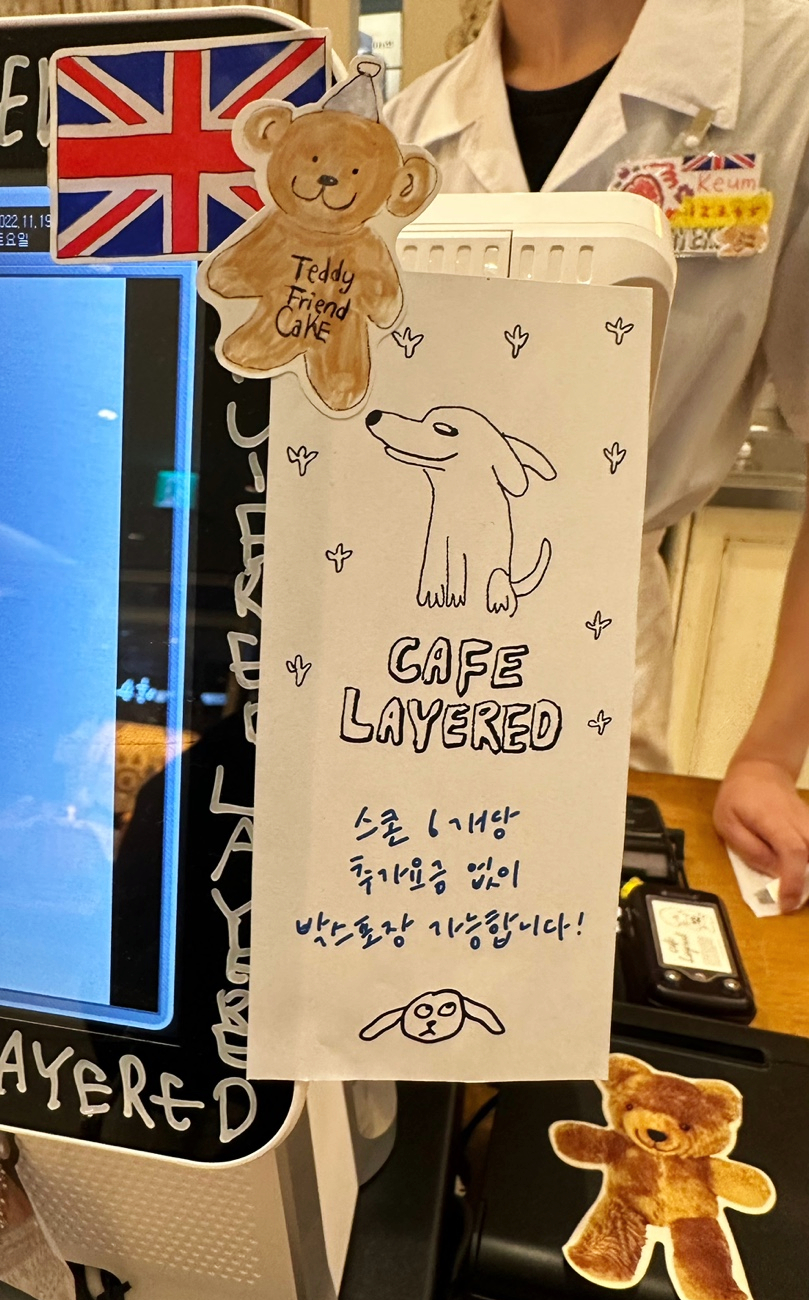 2022.11.19
토요일
Keum
Teddy
Friend
CaKE
CAFE
LAYERED
스콘 6개당
추가요금 없이
박스포장 가능합니다!
LAYERED
LAYERED
Cafe
Layered